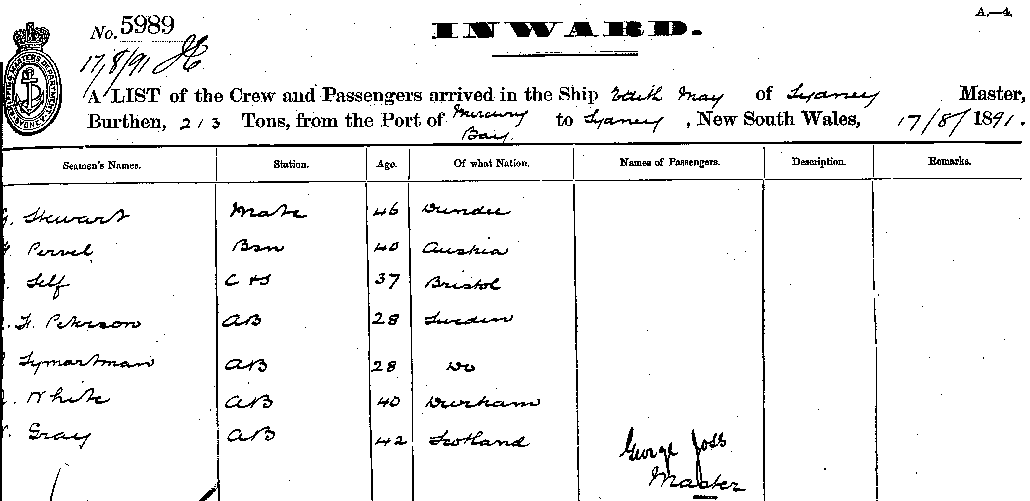 A.—4.
No. 5989
INWARD.
17/8/91
A LIST of the Crew and Passengers arrived in the Ship Edith May of Sydney Master,
Burthen, 213 Tons, from the Port of Mercury Bay to Sydney, New South Wales, 17/8/1891.
Seamen's Names. Station. Age. Of what Nation. Names of Passengers. Description. Remarks.
G. Stewart Mate 46 Dundee
Bsn 40 Austria
Self C & S 37 Bristol
H. Peterson AB 28 Sweden
AB 28 Do
White AB 40 Durham
Gray AB 42 Scotland
George Joss
Master